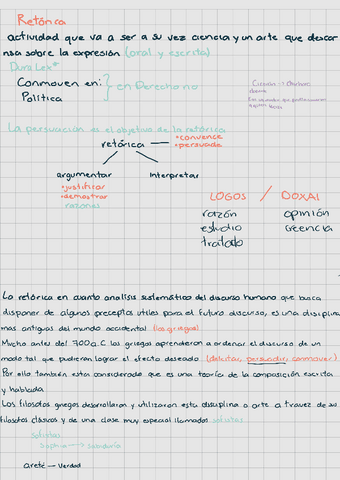 Retórica
actividad que va a ser a su vez ciencia y un arte que descan
nsa sobre la expresión (oral y escrita)
Dura Lex*
Conmoven en: } en Derecho no
Política
La persuación es el objetivo de la retórica
retórica
• convence
• persuada
argumentar
• justificar
• demostrar
razones
Interpretar
LOGOS / DOXAI
razón opinión
estudio creencia
tratado
La retórica en cuanto analisis sistemático del discurso humano que busca
disponer de algunos preceptos utiles para el futuro discurso, es una disciplina
mas antiguas del mundo occidental (los griegos)
Mucho antes del 700a.C los griegos aprendieron a ordenar el discurso de un
modo tal que pudieran lograr el efecto deseado (deleitar, persuadir, conmover)
Por ello también esta considerado que es una teoría de la composición escrita
y hablada.
Los filosofos griegos desarrollaron y utilizaron esta disciplina o arte a travez de su
filosofos clásicos y de una clase muy especial llamados sofistas
sofistas
sophia → sabiduría
areté → Verdad